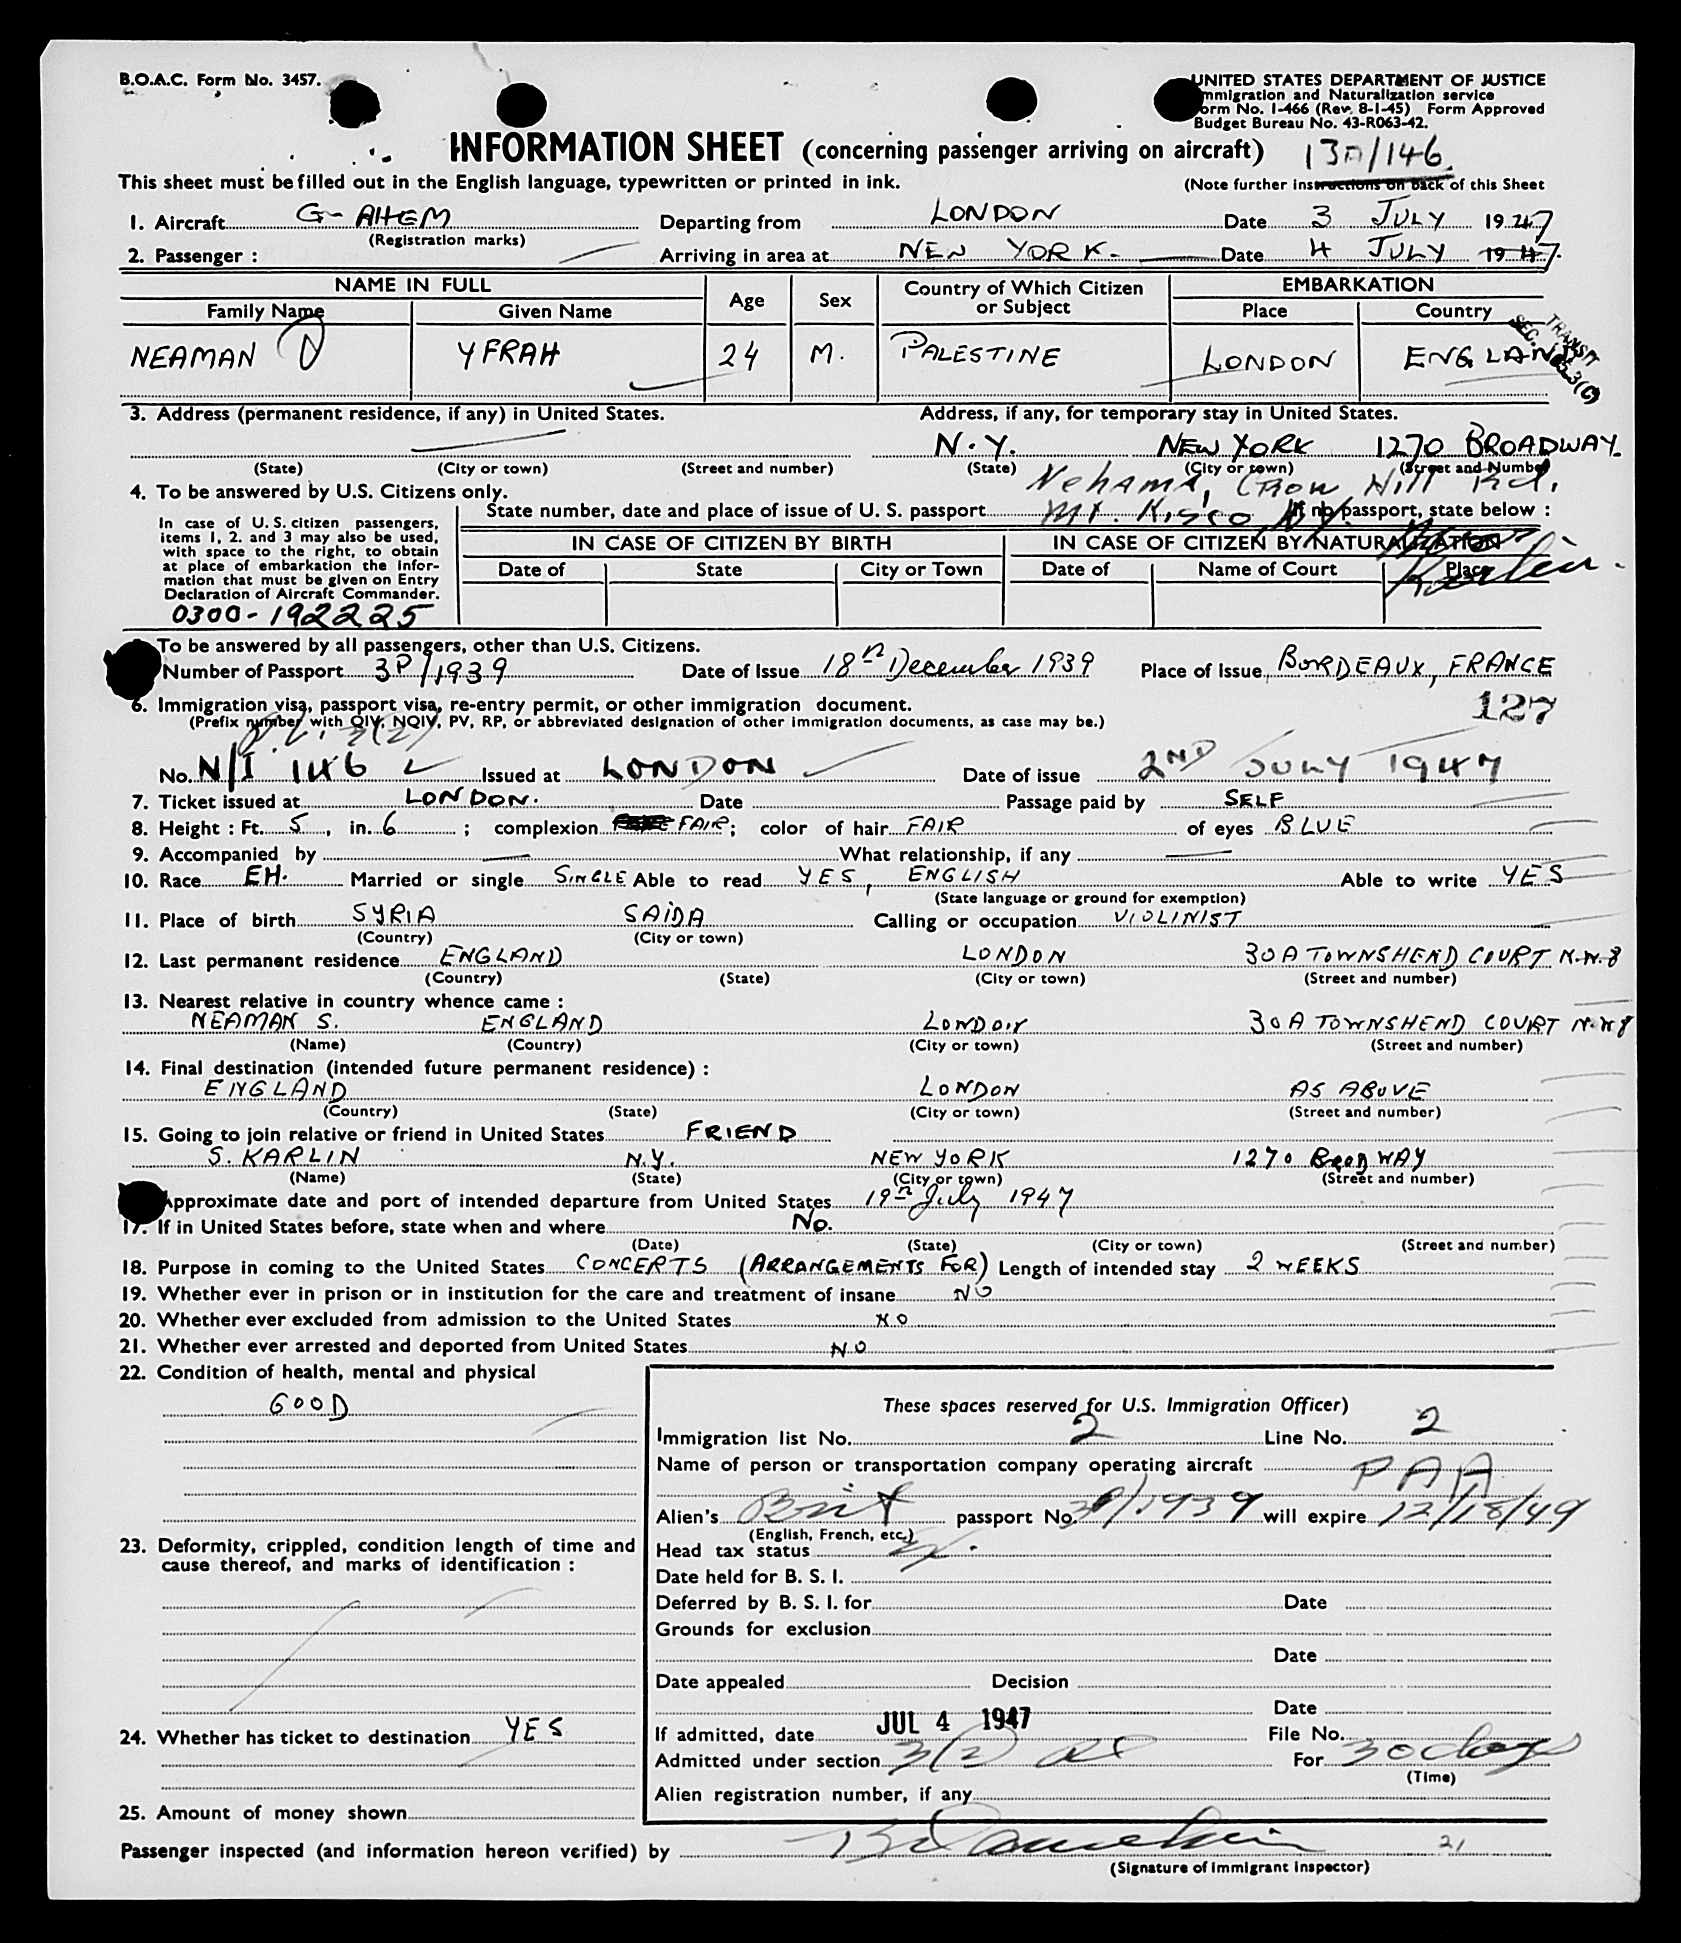 B.O.A.C. Form No. 3457.
UNITED STATES DEPARTMENT OF JUSTICE
Immigration and Naturalization service
Form No. I-466 (Rev. 8-1-45) Form Approved
Budget Bureau No. 43-R063-42.
INFORMATION SHEET (concerning passenger arriving on aircraft)
This sheet must be filled out in the English language, typewritten or printed in ink.
(Note further instructions on back of this Sheet
1. Aircraft G-AHEM Departing from LONDON Date 3 JULY 1947
(Registration marks)
2. Passenger : Arriving in area at NEW YORK. Date 4 JULY 1947.
NAME IN FULL Age Sex Country of Which Citizen or Subject EMBARKATION
Family Name Given Name Place Country
TRANSIT
SEC. 3(C)
NEAMAN YFRAH 24 M. PALESTINE LONDON ENGLAND
3. Address (permanent residence, if any) in United States. Address, if any, for temporary stay in United States.
N.Y. NEW YORK 1270 BROADWAY.
(State) (City or town) (Street and number) (State) (City or town) (Street and Number)
Nehama, Crow Hill Rd.
4. To be answered by U.S. Citizens only.
State number, date and place of issue of U. S. passport Mt. Kisco, NY. If no passport, state below :
In case of U. S. citizen passengers,
items 1, 2. and 3 may also be used,
with space to the right, to obtain
at place of embarkation the infor-
mation that must be given on Entry
Declaration of Aircraft Commander.
IN CASE OF CITIZEN BY BIRTH IN CASE OF CITIZEN BY NATURALIZATION
Date of State City or Town Date of Name of Court Place
Karlin.
0300-192225
To be answered by all passengers, other than U.S. Citizens.
Number of Passport 3P/1939 Date of Issue 18th December 1939 Place of Issue BORDEAUX, FRANCE
6. Immigration visa, passport visa, re-entry permit, or other immigration document. 127
(Prefix number with QIV, NQIV, PV, RP, or abbreviated designation of other immigration documents, as case may be.)
No. N/I 146 Issued at LONDON Date of issue 2ND JULY 1947
7. Ticket issued at LONDON. Date Passage paid by SELF
8. Height : Ft. 5, in. 6 ; complexion FAIR; color of hair FAIR of eyes BLUE
9. Accompanied by — What relationship, if any —
10. Race EH. Married or single SINGLE Able to read YES, ENGLISH Able to write YES
(State language or ground for exemption)
11. Place of birth SYRIA SAIDA Calling or occupation VIOLINIST
(Country) (City or town)
12. Last permanent residence ENGLAND LONDON 30A TOWNSHEND COURT N.W.8
(Country) (State) (City or town) (Street and number)
13. Nearest relative in country whence came :
NEAMAN S. ENGLAND LONDON 30A TOWNSHEND COURT N.W 8
(Name) (Country) (City or town) (Street and number)
14. Final destination (intended future permanent residence) :
ENGLAND LONDON AS ABOVE
(Country) (State) (City or town) (Street and number)
15. Going to join relative or friend in United States FRIEND
S. KARLIN N.Y. NEW YORK 1270 BROADWAY
(Name) (State) (City or town) (Street and number)
Approximate date and port of intended departure from United States 19th July 1947
17. If in United States before, state when and where No.
(Date) (State) (City or town) (Street and number)
18. Purpose in coming to the United States CONCERTS (ARRANGEMENTS FOR) Length of intended stay 2 WEEKS
19. Whether ever in prison or in institution for the care and treatment of insane NO
20. Whether ever excluded from admission to the United States NO
21. Whether ever arrested and deported from United States NO
22. Condition of health, mental and physical
GOOD
These spaces reserved for U.S. Immigration Officer)
Immigration list No. 2 Line No. 2
Name of person or transportation company operating aircraft PAA
Alien's Brit passport No. 3P/1939 will expire 12/18/49
(English, French, etc.)
23. Deformity, crippled, condition length of time and
cause thereof, and marks of identification :
Head tax status
Date held for B. S. I.
Deferred by B. S. I. for Date
Grounds for exclusion
Date
Date appealed Decision
Date
24. Whether has ticket to destination YES
If admitted, date JUL 4 1947 File No.
Admitted under section 3(2) For 30 days
(Time)
Alien registration number, if any
25. Amount of money shown
Passenger inspected (and information hereon verified) by 21
(Signature of Immigrant Inspector)